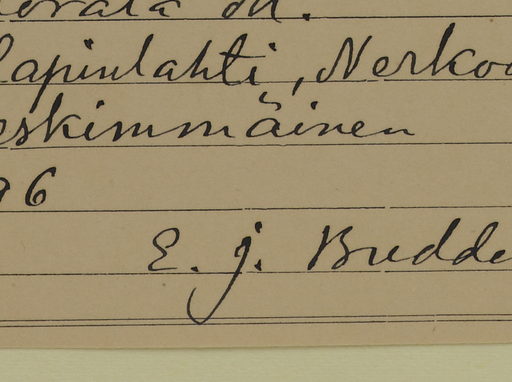 lapinlahti, Nerkoo
eskimmäinen
96
E. J. Budde